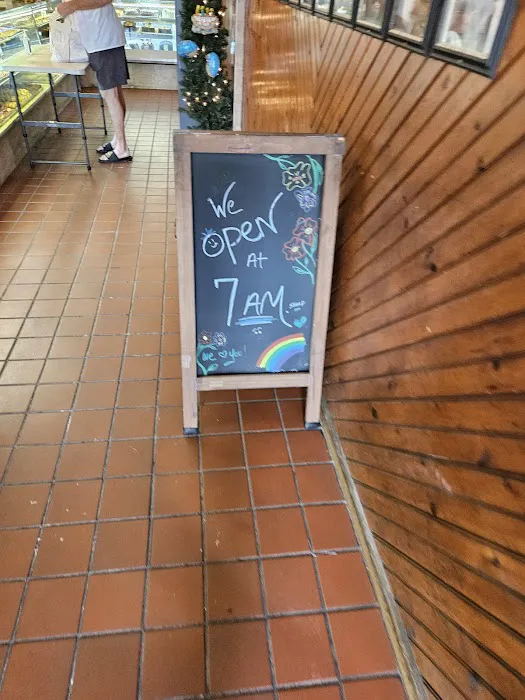 We
OPEN
AT
7AM. SHARP
We ♡ you!